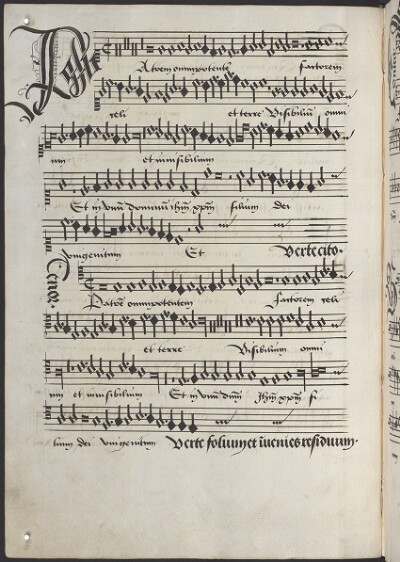 Patrem omnipotente factorem
celi et terre Visibiliu omni
um et invisibilium
Et in unu dominu ihm xpm filium dei
unigenitum Et Verte cito.
Tenor.
Patre omnipotentem factorem celi
et terre Visibilium omni
um et invisibilium Et in unu dnm Ihm xpm fi
lium dei unigenitum Verte folium et invenies residuum.